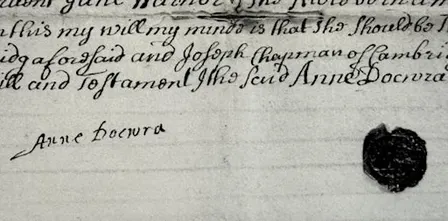 this my will my minde is that she should be
aforesaid and Joseph Chapman of Cambri
ill and Testament I the said Anne Docwra
Anne Docwra